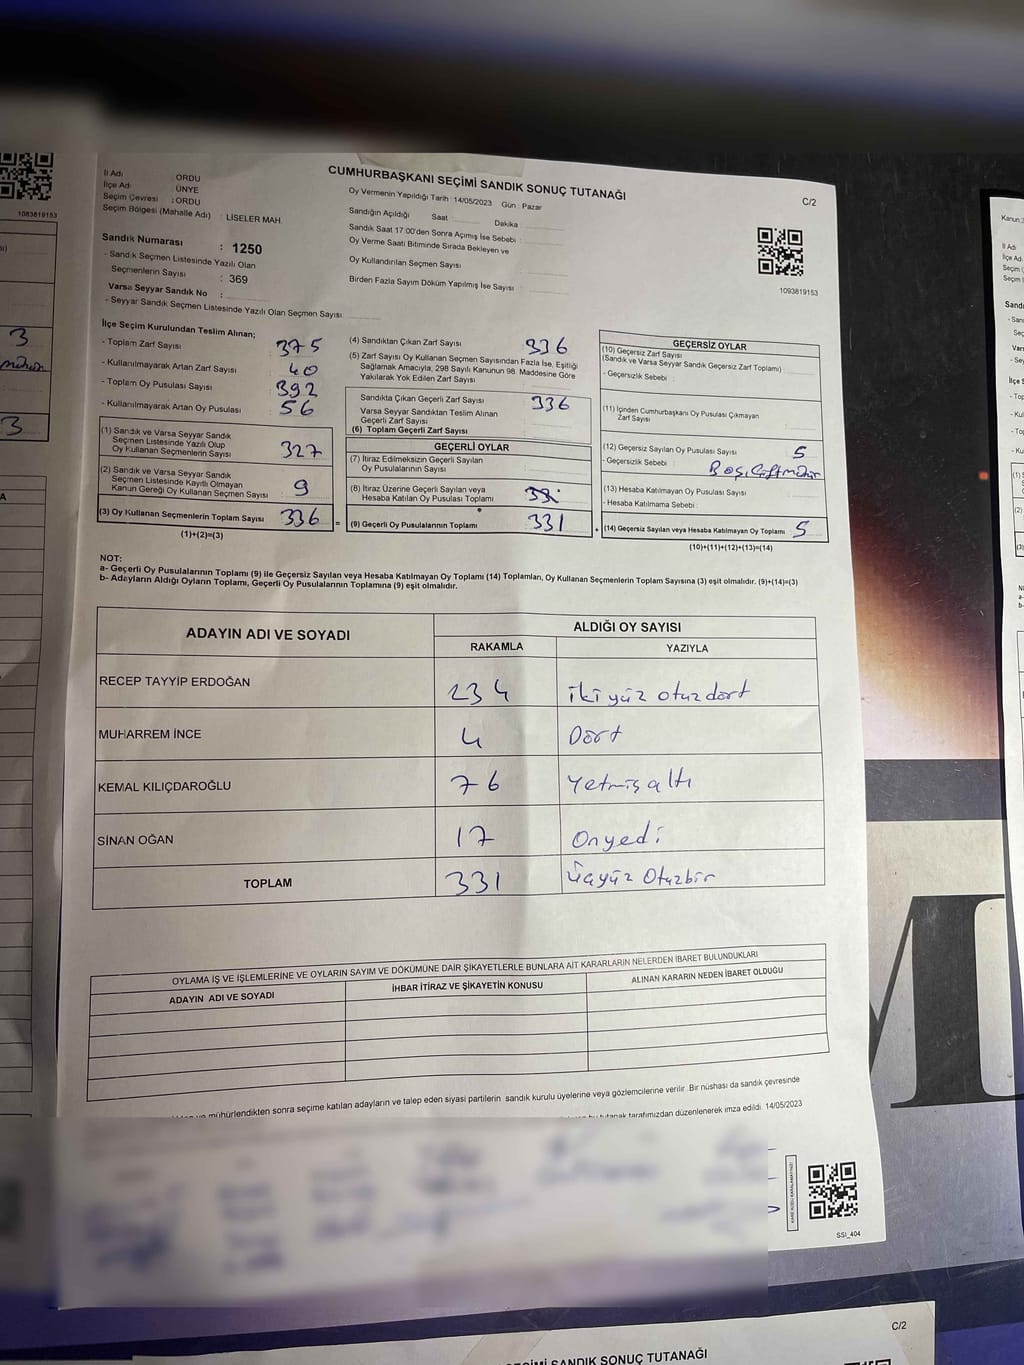 CUMHURBAŞKANI SEÇİMİ SANDIK SONUÇ TUTANAĞI
C/2
İl Adı : ORDU
İlçe Adı : ÜNYE
Seçim Çevresi : ORDU
Seçim Bölgesi (Mahalle Adı) : LİSELER MAH.
Sandık Numarası : 1250
- Sandık Seçmen Listesinde Yazılı Olan
Seçmenlerin Sayısı : 369
Varsa Seyyar Sandık No :
- Seyyar Sandık Listesinde Yazılı Olan Seçmen Sayısı
Oy Vermenin Yapıldığı Tarih : 14/05/2023 Gün : Pazar
Sandığın Açıldığı Saat Dakika
Sandık Saat 17:00'den Sonra Açımış İse Sebebi :
Oy Verme Saati Bitiminde Sırada Bekleyen ve
Oy Kullandırılan Seçmen Sayısı
Birden Fazla Sayım Döküm Yapılmış İse Sayısı
1093819153
İlçe Seçim Kurulundan Teslim Alınan;
- Toplam Zarf Sayısı 375
- Kullanılmayarak Artan Zarf Sayısı 40
- Toplam Oy Pusulası Sayısı 392
- Kullanılmayarak Artan Oy Pusulası 56
(1) Sandık ve Varsa Seyyar Sandık
Seçmen Listesinde Yazılı Olup
Oy Kullanan Seçmenlerin Sayısı 327
(2) Sandık ve Varsa Seyyar Sandık
Seçmen Listesinde Kayıtlı Olmayan
Kanun Gereği Oy Kullanan Seçmen Sayısı 9
(3) Oy Kullanan Seçmenlerin Toplam Sayısı 336
(1)+(2)=(3)
(4) Sandıktan Çıkan Zarf Sayısı 336
(5) Zarf Sayısı Oy Kullanan Seçmen Sayısından Fazla İse, Eşitliği
Sağlamak Amacıyla, 298 Sayılı Kanunun 98. Maddesine Göre
Yakılarak Yok Edilen Zarf Sayısı
Sandıkta Çıkan Geçerli Zarf Sayısı 336
Varsa Seyyar Sandıktan Teslim Alınan
Geçerli Zarf Sayısı
(6) Toplam Geçerli Zarf Sayısı
GEÇERLİ OYLAR
(7) İtiraz Edilmeksizin Geçerli Sayılan
Oy Pusulalarının Sayısı
(8) İtiraz Üzerine Geçerli Sayılan veya
Hesaba Katılan Oy Pusulası Toplamı
= (9) Geçerli Oy Pusulalarının Toplamı 331 +
GEÇERSİZ OYLAR
(10) Geçersiz Zarf Sayısı
(Sandık ve Varsa Seyyar Sandık Geçersiz Zarf Toplamı)
- Geçersizlik Sebebi :
(11) İçinden Cumhurbaşkanı Oy Pusulası Çıkmayan
Zarf Sayısı
(12) Geçersiz Sayılan Oy Pusulası Sayısı 5
- Geçersizlik Sebebi : Boş, Çiftmühür
(13) Hesaba Katılmayan Oy Pusulası Sayısı
- Hesaba Katılmama Sebebi :
(14) Geçersiz Sayılan veya Hesaba Katılmayan Oy Toplamı 5
(10)+(11)+(12)+(13)=(14)
NOT:
a- Geçerli Oy Pusulalarının Toplamı (9) ile Geçersiz Sayılan veya Hesaba Katılmayan Oy Toplamı (14) Toplamları, Oy Kullanan Seçmenlerin Toplam Sayısına (3) eşit olmalıdır. (9)+(14)=(3)
b- Adayların Aldığı Oyların Toplamı, Geçerli Oy Pusulalarının Toplamına (9) eşit olmalıdır.
ADAYIN ADI VE SOYADI ALDIĞI OY SAYISI
RAKAMLA YAZIYLA
RECEP TAYYİP ERDOĞAN 234 iki yüz otuz dört
MUHARREM İNCE 4 Dört
KEMAL KILIÇDAROĞLU 76 Yetmiş altı
SİNAN OĞAN 17 Onyedi
TOPLAM 331 Üçyüz Otuzbir
OYLAMA İŞ VE İŞLEMLERİNE VE OYLARIN SAYIM VE DÖKÜMÜNE DAİR ŞİKAYETLERLE BUNLARA AİT KARARLARIN NELERDEN İBARET BULUNDUKLARI
ADAYIN ADI VE SOYADI İHBAR İTİRAZ VE ŞİKAYETİN KONUSU ALINAN KARARIN NEDEN İBARET OLDUĞU
ve mühürlendikten sonra seçime katılan adayların ve talep eden siyasi partilerin sandık kurulu üyelerine veya gözlemcilerine verilir. Bir nüshası da sandık çevresinde
tutanak tarafımızdan düzenlenerek imza edildi. 14/05/2023
SSI_404
1083819153
3
3
C/2
SANDIK SONUÇ TUTANAĞI